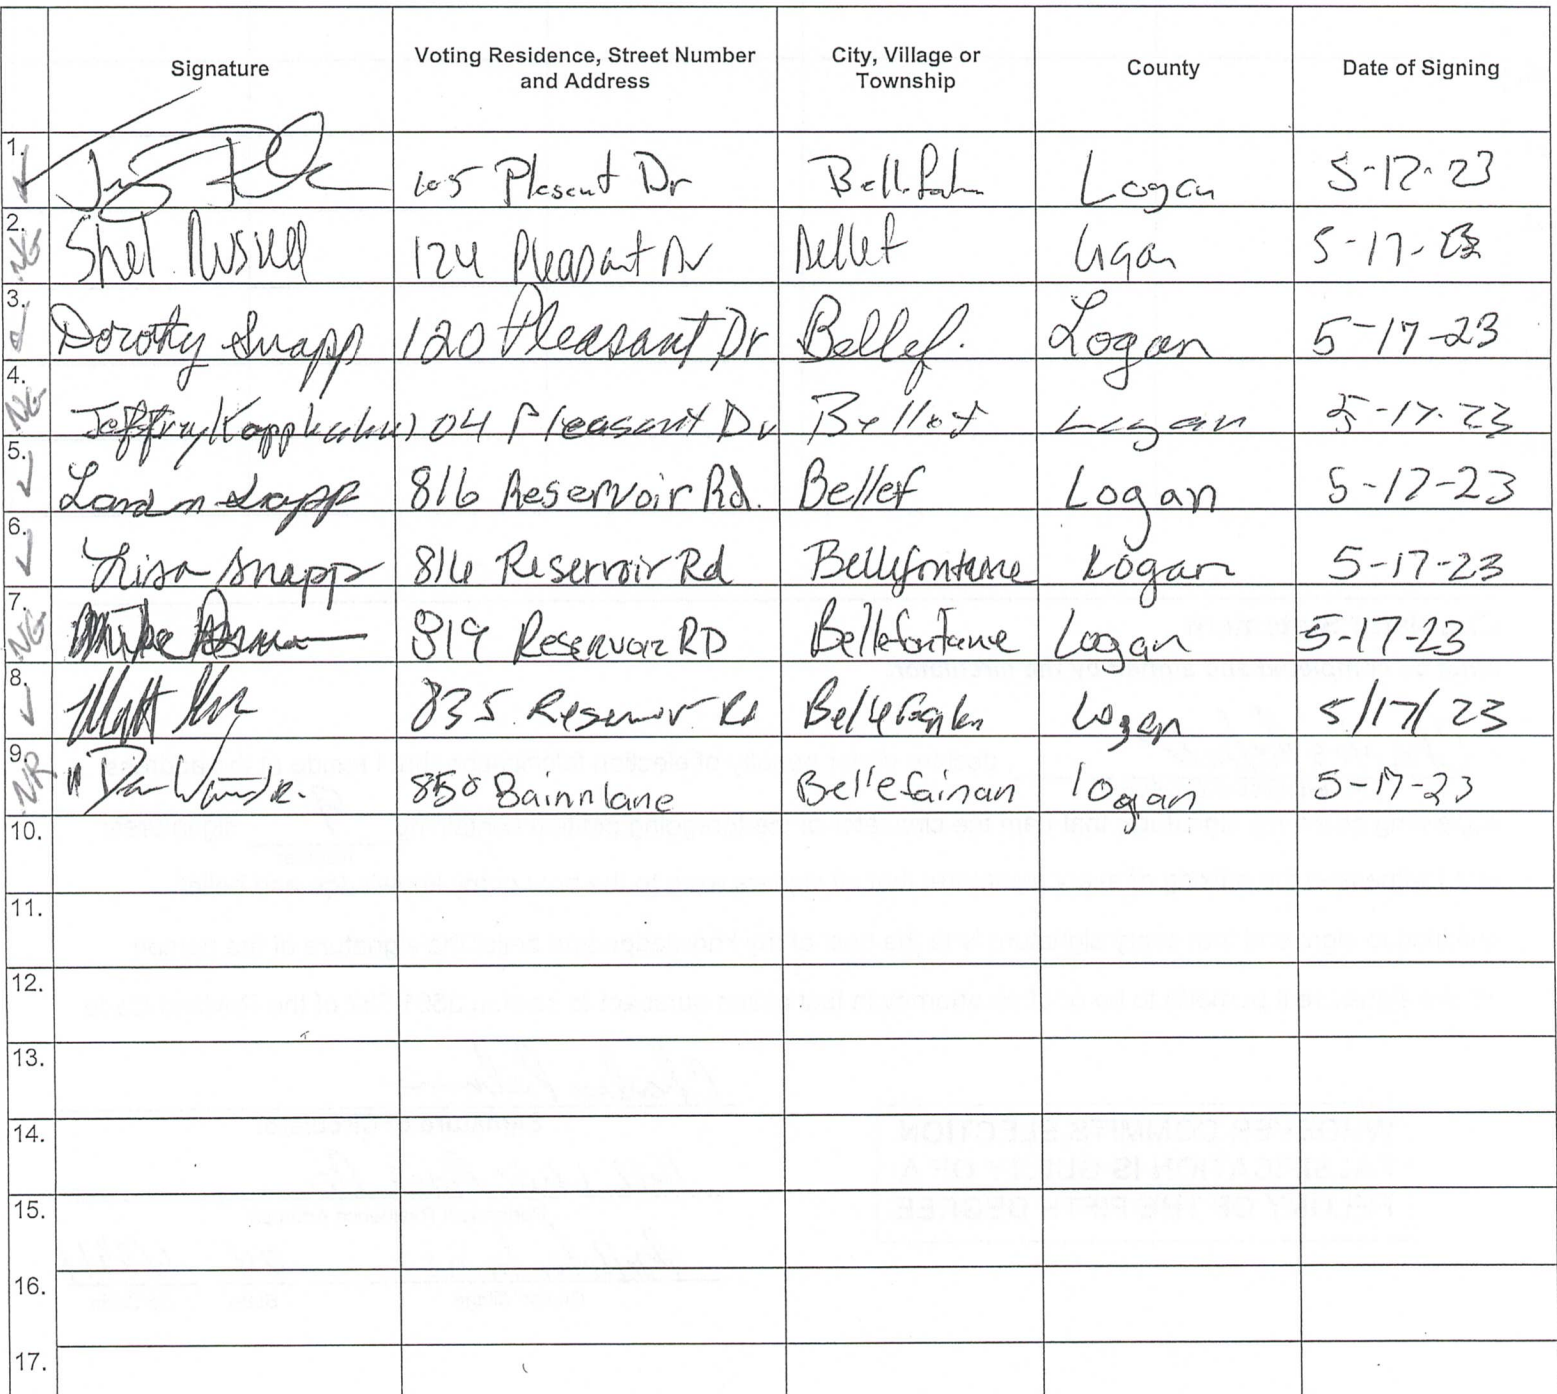 Signature
Voting Residence, Street Number and Address
City, Village or Township
County
Date of Signing
1. 105 Plesent Dr Logan 5-17-23
2. NG Shel Russell 124 Pleasant Dr Bellef Logan 5-17-23
3. Dorothy Snapp 120 Pleasant Dr Bellef. Logan 5-17-23
4. NG Jeffrey 104 Pleasant Dr Bellef Logan 5-17-23
5. Snapp 816 Reservoir Rd. Bellef Logan 5-17-23
6. Lisa Snapp 816 Reservoir Rd Bellefontaine Logan 5-17-23
7. NG Mike 819 Reservoir RD Bellefontaine Logan 5-17-23
8. Matt 835 Reservoir Rd Logan 5/17/23
9. NR Dan 850 Bainnlane Bellefainan logan 5-17-23
10.
11.
12.
13.
14.
15.
16.
17.